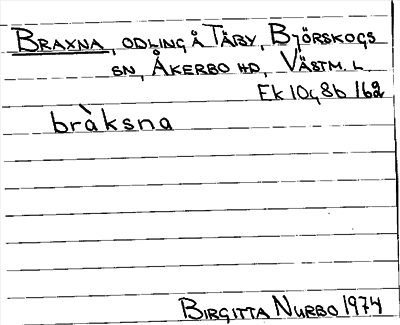 BRAXNA, ODLING Å TÄBY, BJÖRSKOGS
SN, ÅKERBO HD, VÄSTM. L.
Ek 10g8b 162
bràksna
BIRGITTA NURBO 1974